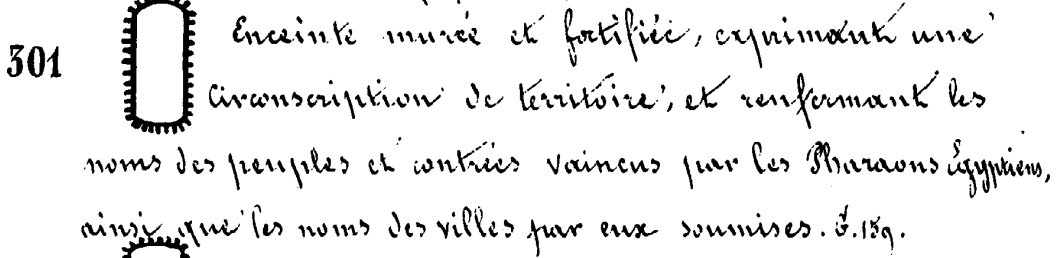 Enceinte murée et fortifiée, exprimant une
301 circonscription de territoire, et renfermant les
noms des peuples et contrées vaincus par les Pharaons Égyptiens,
ainsi que les noms des villes par eux soumises. G. 159.